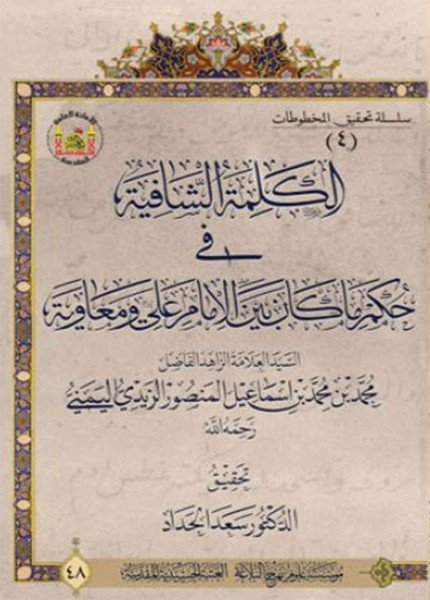 سلسلة تحقيق المخطوطات
(٤)
الكلمة الشافية
في
حكم ما كان بين الإمام علي ومعاوية
السيد العلامة الزاهد الفاضل
محمد بن محمد بن إسماعيل المنصور الزيدي اليمني
رحمه الله
تحقيق
الدكتور سعد الحداد
مؤسسة علوم نهج البلاغة العتبة الحسينية المقدسة
٤٨